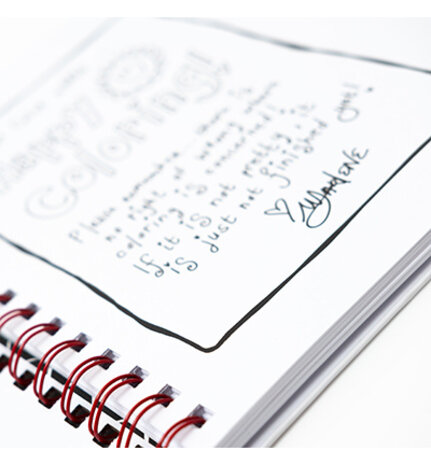 Happy
Coloring!
Please remember there is
no right or wrong when
coloring is concerned!
If it is not pretty, it
is just not finished yet!
♡ Marlene